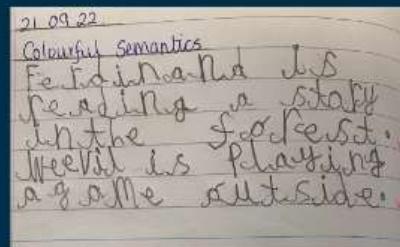 21.09.22
Colourful Semantics
Ferdinand is
reading a story
in the forest.
Weevil is playing
a game outside.